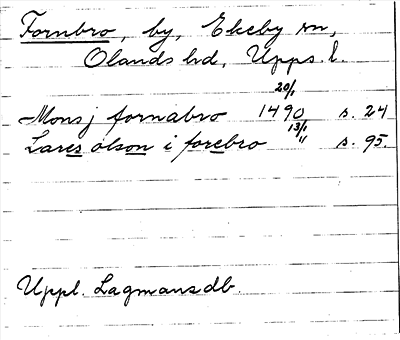 Fornbro, by, Ekeby sn,
Olands hd, Upps. l.
Mons j fornabro 1490 20/1 s. 24
Lares olson i forebro " 13/1 s. 95.
Uppl. Lagmansdb.